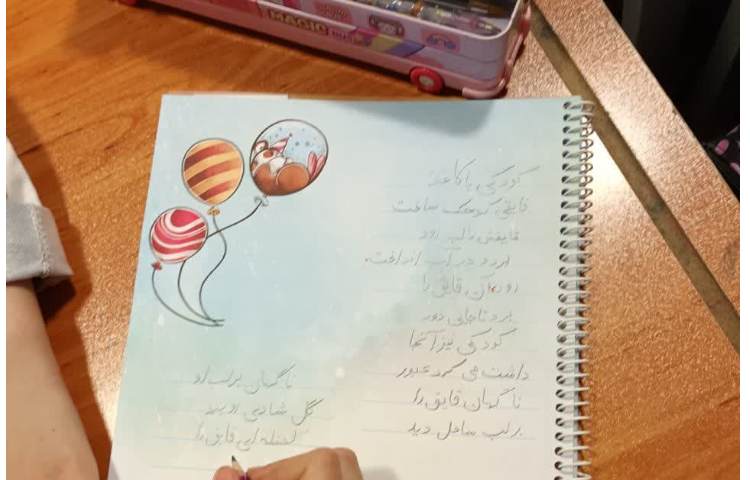 MAGIC
کودکی با کاغذ
قایقی کوچک ساخت
قایقش را لب رود
برد و در آب انداخت.
رود آن قایق را
برد تا جای دور
کودکی نیز آنجا
داشت می کرد عبور
ناگهان قایق را
بر لب ساحل دید
ناگهان بر لب او
گل شادی رویید
لحظه ای قایق را